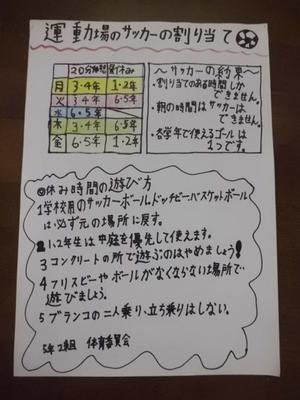 運動場のサッカーの割り当て
20分休み 昼休み
月 3・4年 1・2年
火 3・4年 6・5年
水 6・5年
木 3・4年 6・5年
金 6・5年 1・2年
〜サッカーの約束〜
・割り当てのある時間しか
できません。
・朝の時間はサッカーは
できません。
・各学年で使えるゴールは
1つです。
◎休み時間の遊び方
1学校用のサッカーボール、ドッチビー、バスケットボール
は必ず元の場所に戻す。
2 1、2年生は中庭を優先して使えます。
3 コンクリートの所で遊ぶのはやめましょう!
4 フリスビーやボールがなくならない場所で
遊びましょう。
5 ブランコの二人乗り、立ち乗りはしない。
5年2組 体育委員会